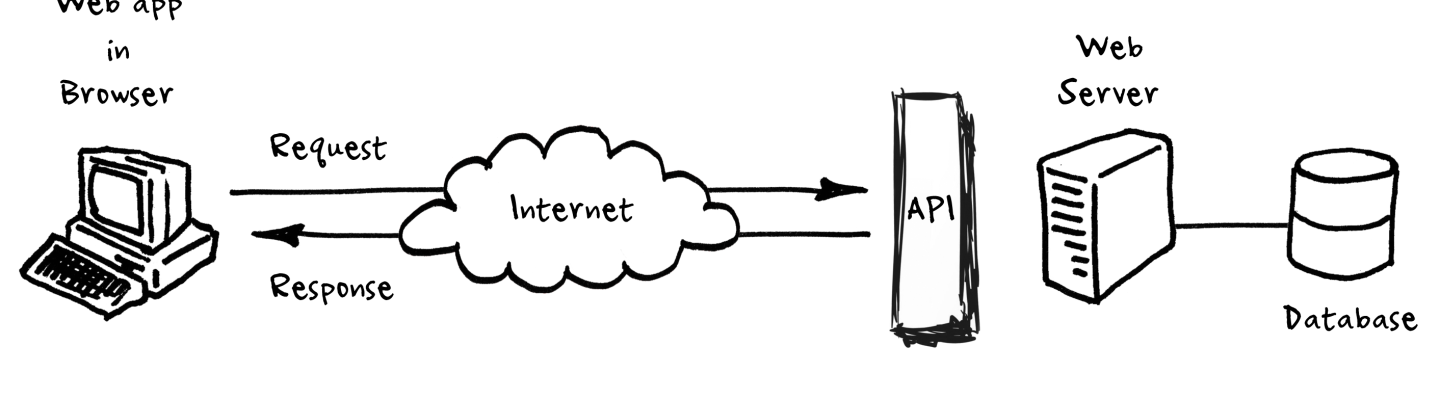 Web app
in
Browser
Request
Response
Internet
API
Web
Server
Database